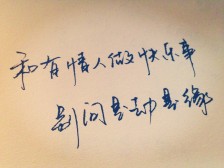 和有情人做快乐事
别问是劫是缘